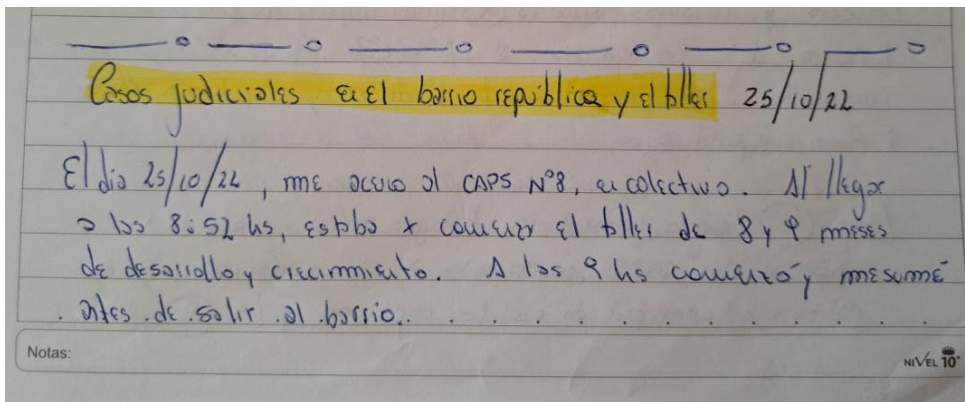 Casos judiciales en el barrio república y el taller 25/10/22
El día 25/10/22, me acerco al CAPS N°8, en colectivo. Al llegar
a las 8:52 hs, estaba x comenzar el taller de 8 y 9 meses
de desarrollo y crecimiento. A las 9 hs comenzó y me sumé
antes de salir al barrio.
Notas:
NIVEL 10